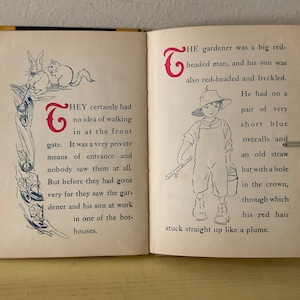 THEY certainly had
no idea of walking
in at the front
gate. It was a very private
means of entrance and
nobody saw them at all.
But before they had gone
very far they saw the gar-
dener and his son at work
in one of the hot-
houses.
THE gardener was a big red-
headed man, and his son was
also red-headed and freckled.
He had on a
pair of very
short blue
overalls and
an old straw
hat with a hole
in the crown,
through which
his red hair
stuck straight up like a plume.